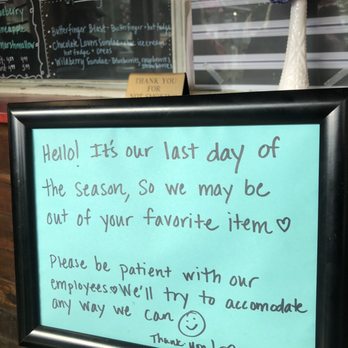 eberry
ineapple
marshmallow
Butterfinger Blast - Butterfinger + hot fudge
Chocolate Lovers Sundae
ice cream
hot fudge + oreos
Wildberry Sundae - Blueberries, raspberries
strawberries
THANK YOU
FOR
NOT SMOKING
Hello! It's our last day of
the season, So we may be
out of your favorite item ♡
Please be patient with our
employees ♥ We'll try to accomodate
any way we can ☺
Thank You!